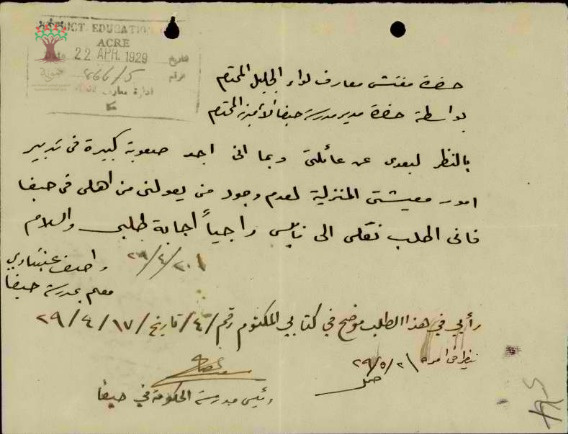 DISTRICT EDUCATION
ACRE
22 APR. 1929 تاريخ
866/5 نمرة
ادارة معارف
حضرة مفتش معارف لواء الجليل المحترم
بواسطة حضرة مدير مدرسة حيفا الاميرية المحترم
بالنظر لبعدي عن عائلتي وبما اني اجد صعوبة كبيرة في تدبير
امور معيشتي المنزلية لعدم وجود من يعولني من اهلي في حيفا
فاني اطلب نقلي الى نابلس راجياً اجابة طلبي والسلام
واصف عبتاوي
معلم بمدرسة حيفا
رأيي في هذا الطلب موضح في كتابي المكتوم رقم /٤/ تاريخ /١٧/٤/٢٩
ينظر في امره ٢٩/٥/٢١
رئيس مدرسة الحكومة في حيفا